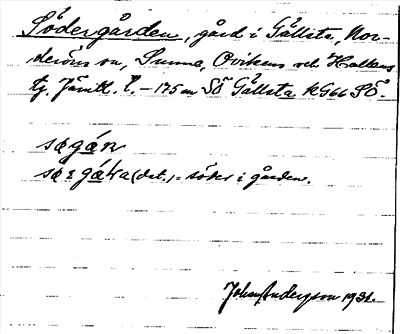 Södergården, gård i Gällsta, Nor-
deröns sn, Sunne, Ovikens och Hallens
tg. Jämtl. l. – 175 m SÖ Gällsta kG66 SÖ.
søgán
søʀgáɴa (dat.) = söder i gården.
Johan Anderzon 1931.